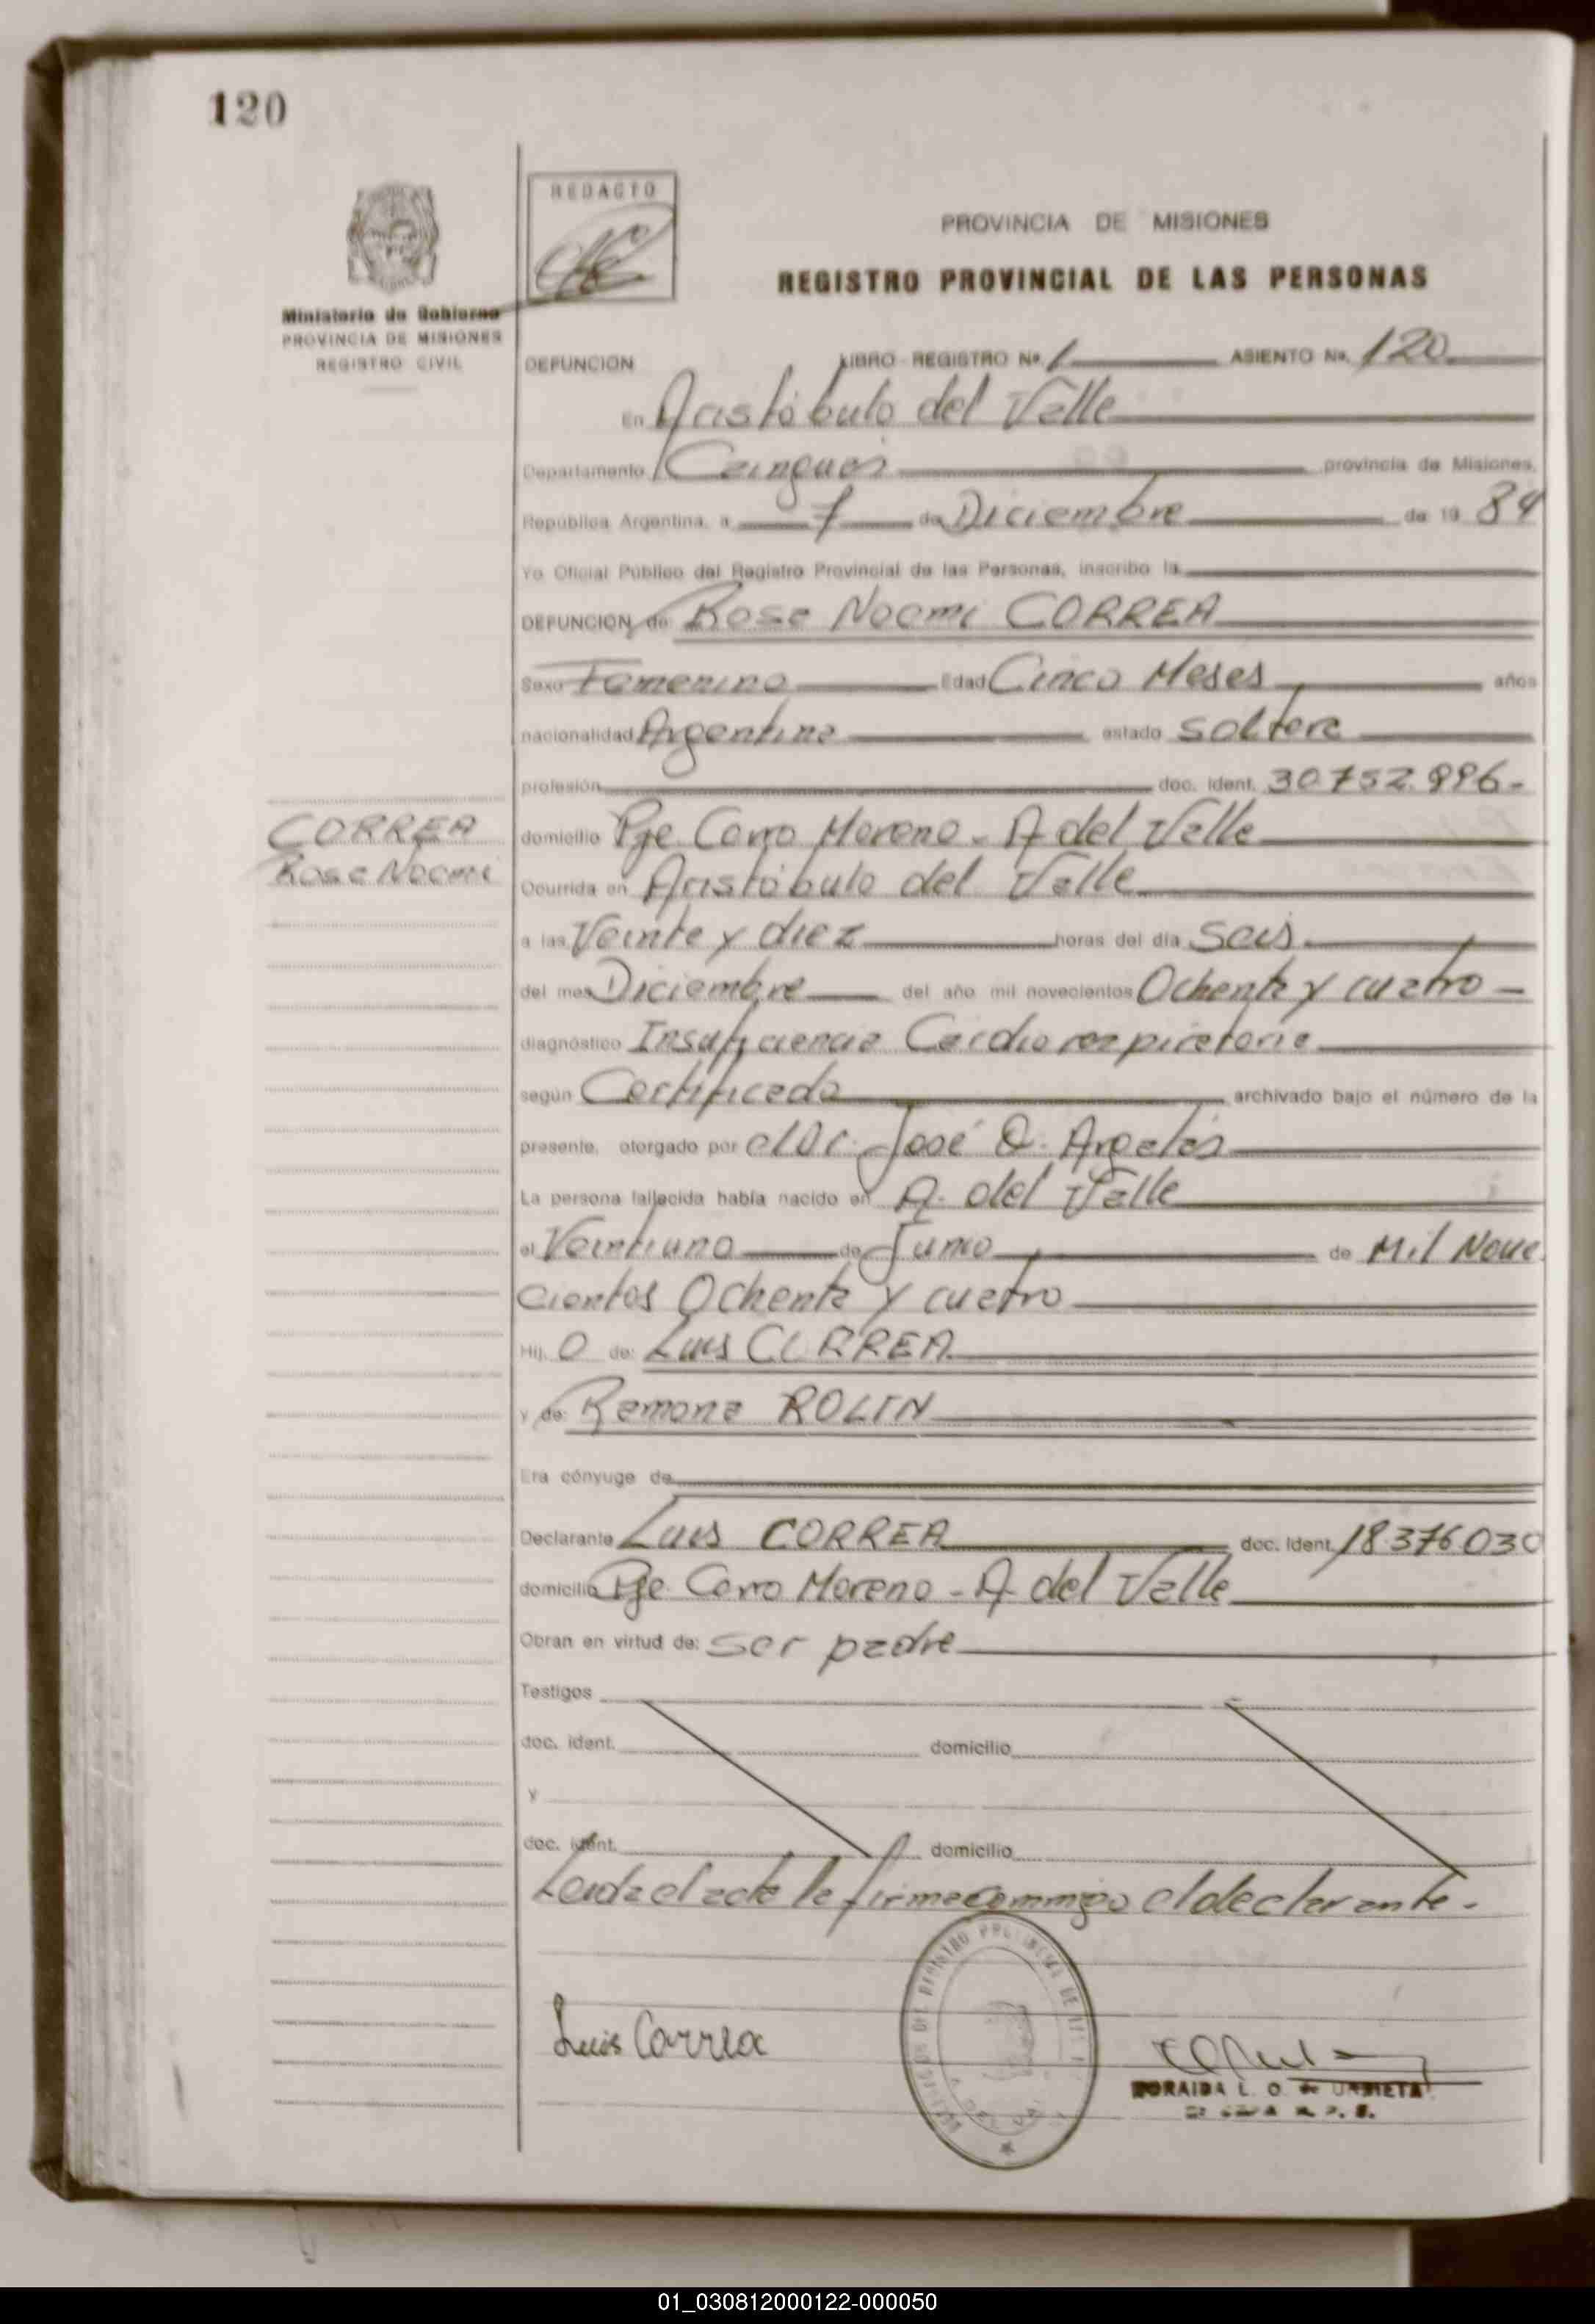 120
REDACTO
PROVINCIA DE MISIONES
REGISTRO PROVINCIAL DE LAS PERSONAS
Ministerio de Gobierno
PROVINCIA DE MISIONES
REGISTRO CIVIL
DEFUNCION LIBRO - REGISTRO Nº. 1 ASIENTO Nº. 120
En Aristóbulo del Valle
Departamento Cainguás provincia de Misiones,
República Argentina, a 7 de Diciembre de 19 84
Yo Oficial Público del Registro Provincial de las Personas, inscribo la
DEFUNCION de: Rosa Noemi CORREA
Sexo Femenino Edad Cinco Meses años
nacionalidad Argentina estado soltera
profesión doc. ident. 30.752.896-
CORREA
Rosa Noemi
domicilio Pje. Cerro Moreno - A. del Valle
Ocurrida en Aristóbulo del Valle
a las Veinte y diez horas del día Seis
del mes Diciembre del año mil novecientos Ochenta y cuatro -
diagnóstico Insuficiencia Cardiorespiratoria
según Certificado archivado bajo el número de la
presente, otorgado por el Dr. José O.
La persona fallecida había nacido en A. del Valle
el Veintiuno de Junio de Mil Nove
cientos Ochenta y cuatro
Hij. O de: Luis CORREA
y de: Ramona ROLIN
Era cónyuge de
Declarante Luis CORREA doc. ident. 18.376.030
domicilio Pje. Cerro Moreno - A. del Valle
Obran en virtud de: ser padre
Testigos
doc. ident. domicilio
y
doc. ident. domicilio
Leida el acta la firma conmigo el declarante.
Luis Correa
ZORAIDA L. O. de URBIETA
01_030812000122-000050